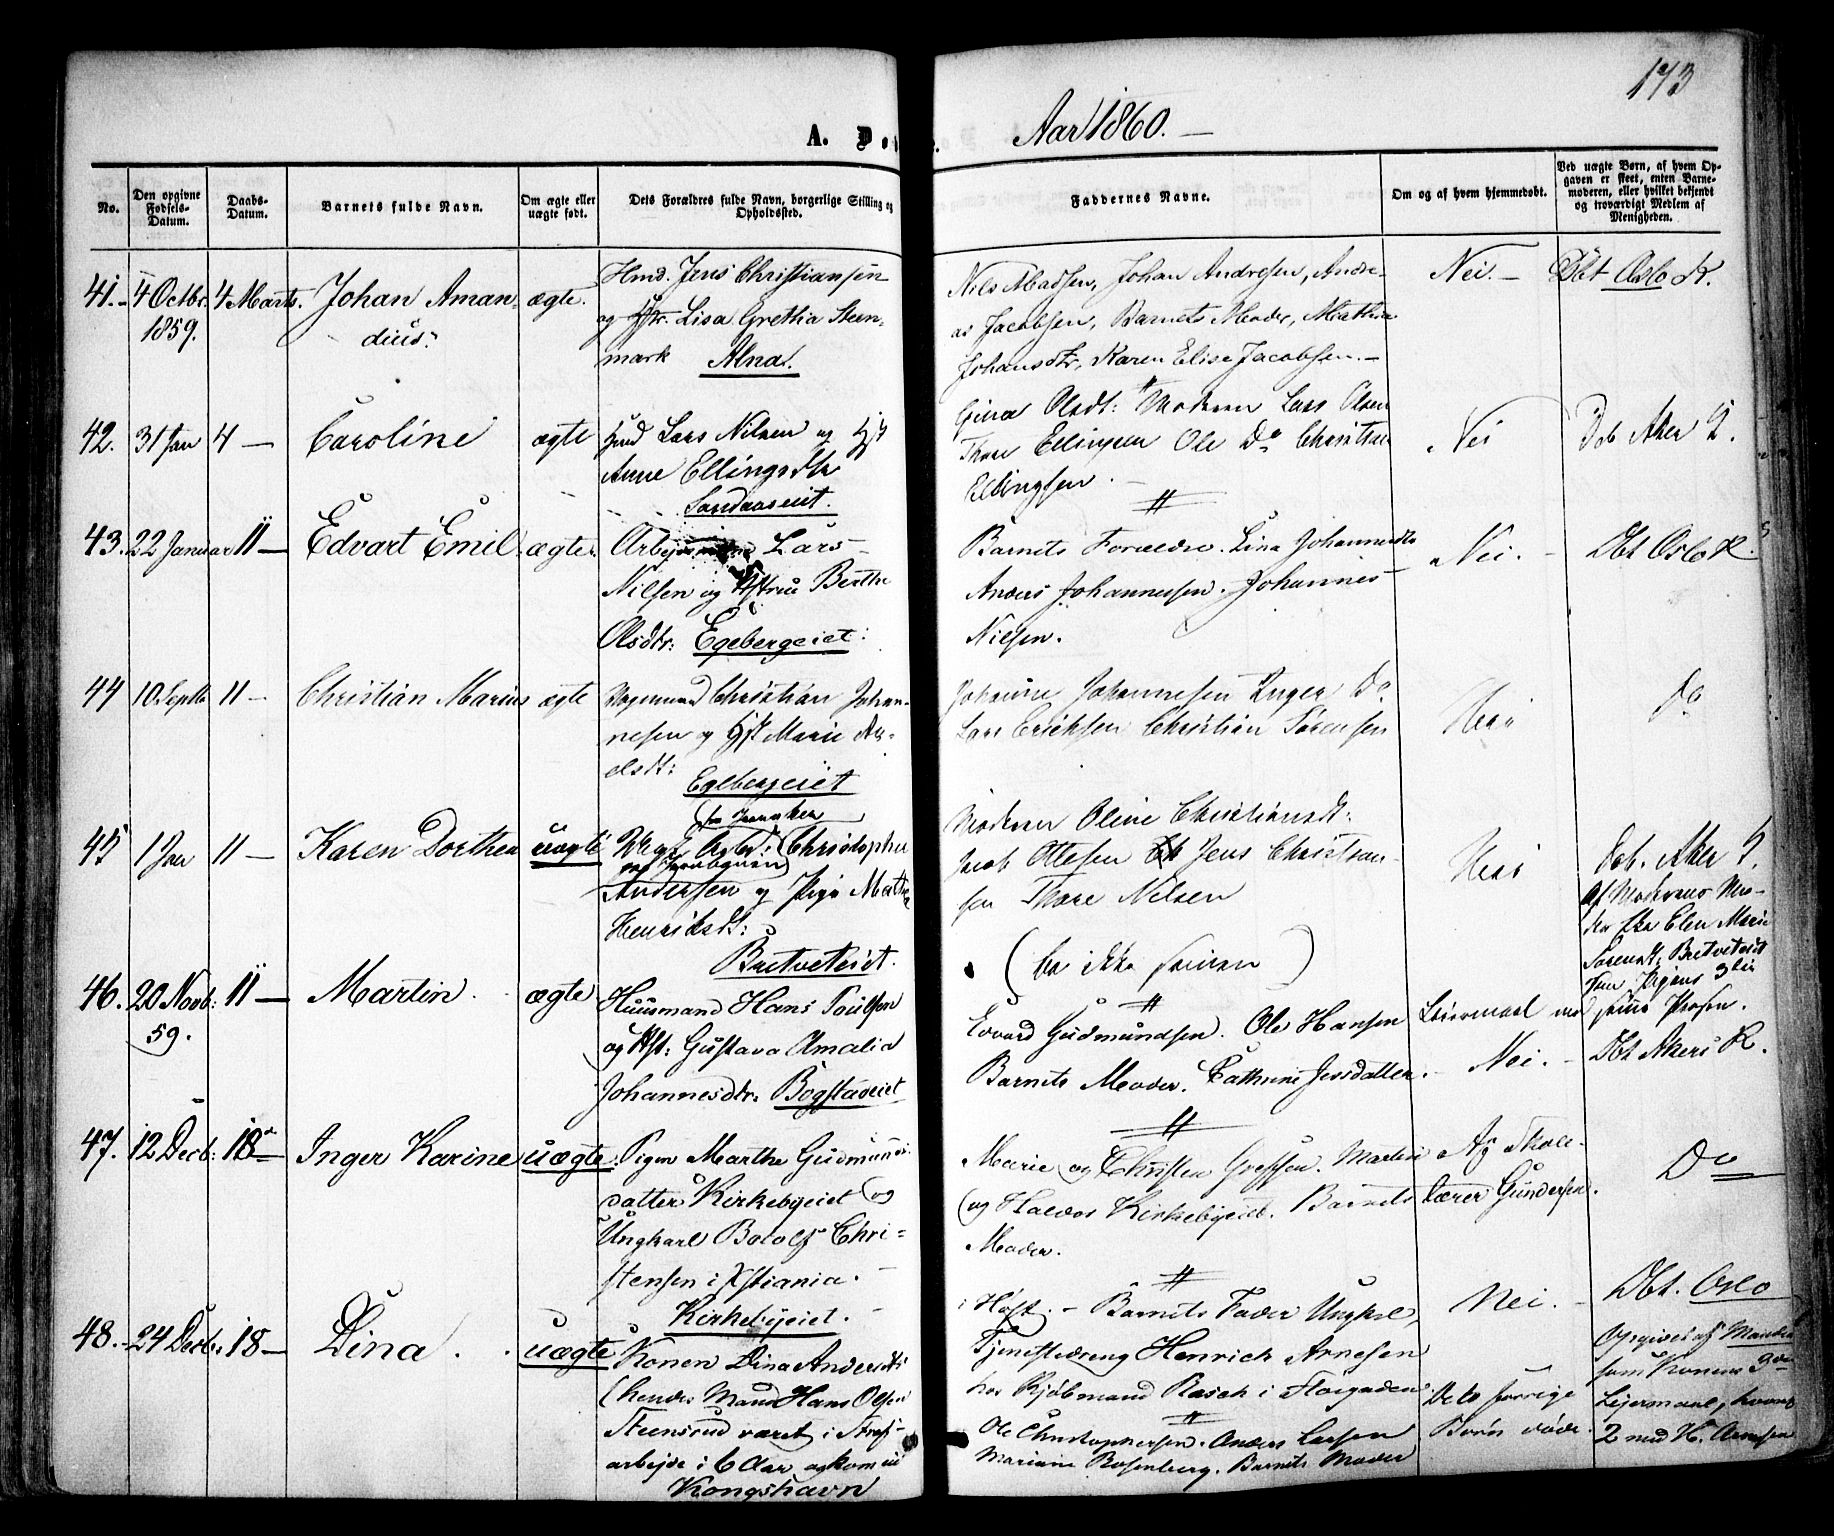 173
A. Dø
Aar 1860. —
No.
Den opgivne Fødsels-Datum.
Daabs-Datum.
Barnets fulde Navn.
Om ægte eller uægte født.
Dets Forældres fulde Navn, borgerlige Stilling og Opholdssted.
Faddernes Navne.
Om og af hvem hjemmedøbt.
Ved uægte Børn, af hvem Opgaven er skeet, enten Barnemoderen, eller hvilket bekjendt og troværdigt Medlem af Menigheden.
41. 4 Octbr. 1859. 4 Marts. Johan Aman-
dius. ægte.
Hmd. Jens Christiansen
og Hstr. Lisa Grethia Steen-
mark Alna.
Nils Madsen, Johan Andresen, Andre-
as Jacobsen, Barnets Moder, Mathea
Johansdtr, Karen Elise Jacobsen. —
Nei. —
Dbt Oslo K.
42. 31 Jan 4 — Caroline ægte
Hmd Lars Nilsen og Hst
Anne Ellingsdtr
Sandaaseiet.
Gina Olsdt: Moderen Lars Olsen
Thore Ellingsen Ole Do Christian
Ellingsen.
Nei
Døb Aker K.
43. 22 Januar 11 — Edvart Emil. ægte.
Arbejdsmann Lars
Nilsen og Hstrue Berthe
Olsdtr: Egebergeiet:
Barnets Forældre. Lina Johannesdtr
Anders Johannesen. Johannes
Nielsen.
Nei. —
Dbt Oslo K.
44 10 Septbr 11 — Christian Marius ægte
Christian Johan-
nesen og Hst Marie
elsdt:
Egebergeiet
Johanne Johannesen Inger Do
Lars Ericksen Christian Sørensen
Nei
Do
45 1 Jan 11 — Karen Dorthea uægte
Christopher
Andersen og Pige Mathea
Henriksdt:
Bretveteiet.
Moderen Oline Christiansdt:
Jacob Ottesen Jens Christian-
sen Thore Nilsen
(ba ikke )
Nei
Døb. Aker K.
Af Moderens Mo-
der Elen Marie
Sorensdt, Bretveteiet
Pigens 3die
Leiermaal med
46. 20 Novb: 59. 11 — Martin. ægte
Huusmand Hans Poulsen
og Hst: Gustava Amalia
Johannesdtr: Bogstadeiet
Edvard Gudmundsen. Ole Hansen
Barnets Moder. Cathrine Jensdatter.
Nei. —
Dbt Akers K.
47. 12 Decb: 18 — Inger Karine uægte.
Pigen Marthe Gudmunds-
datter Kirkebyeiet og
Ungkarl Botolf Chri-
stensen i Xstiania. —
Kirkebyeiet. —
Marie og Christen Grefsen. Martin
og Halvor Kirkebyeiet. Barnets
Moder.
Af Skole-
lærer Gundersen.
Do
48. 24 Decbr. 18 — Dina. uægte
Konen Dina Andersdt:
(hendes Mand Hans Olsen
Steensrud været i Straf-
arbejde i 6 Aar og kom ud
Kongshavn
i Høst. — Barnets Fader Ungkrl,
Tjenestedreng Henrich Arnesen
hos Kjøbmand Rasch i Storgaden.
Ole Christophersen. Anders Larsen
Mariane Rosenberg. Barnets Moder
Nei. —
De to forrige
Børn døde.
Dbt. Oslo
Opgivet af
som Konens 3die
Leiermaal, hvoraf
2 med H. Arnesen